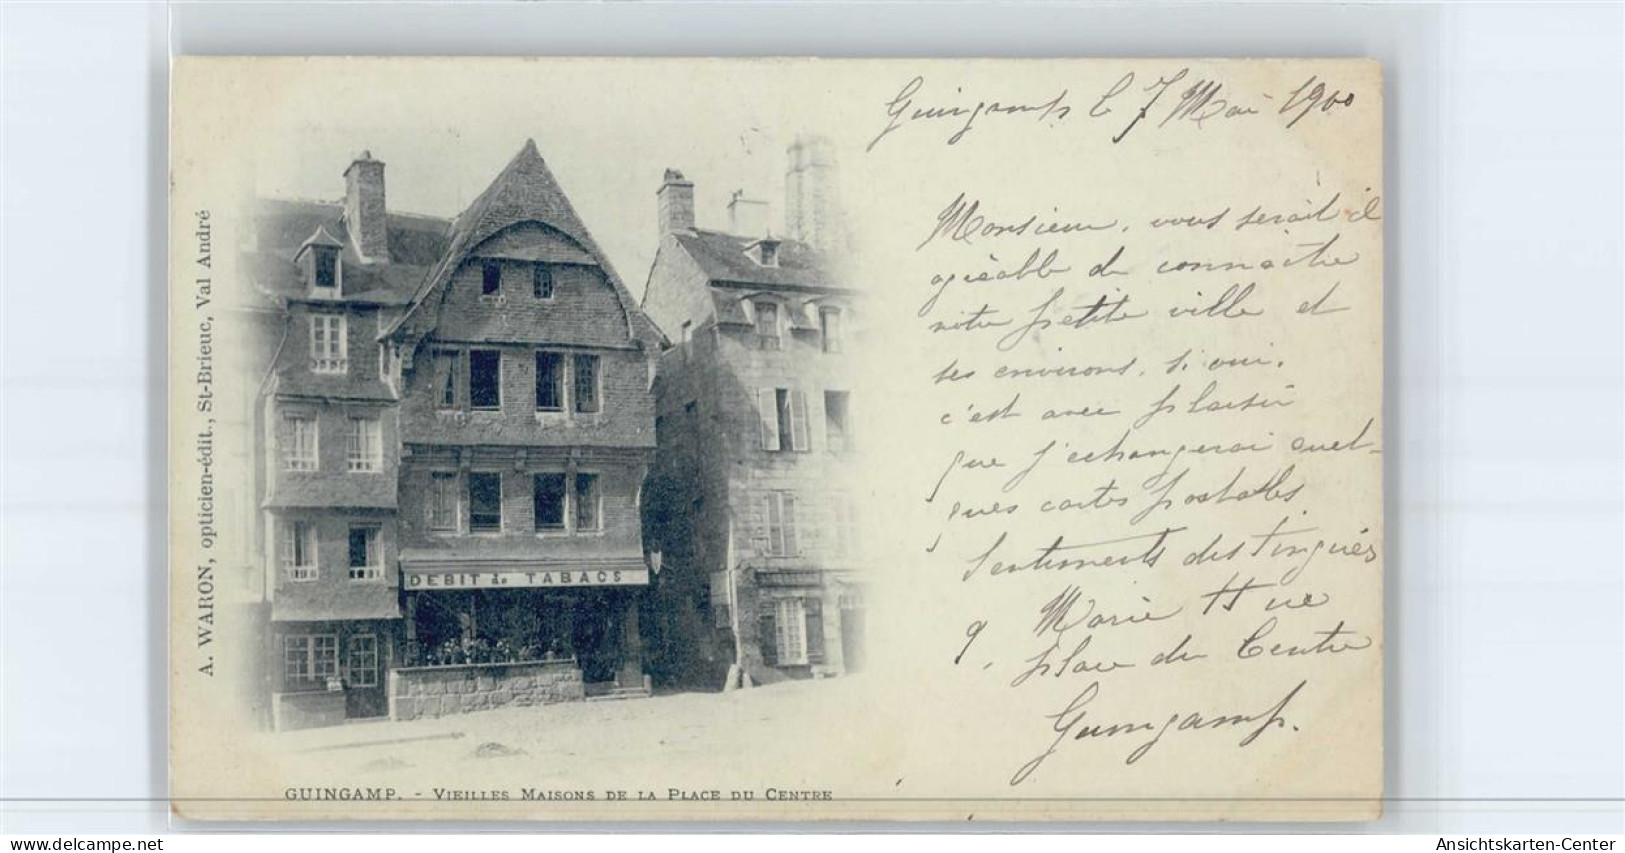 A. WARON, opticien-édit., St-Brieuc, Val André
DEBIT de TABACS
GUINGAMP. - VIEILLES MAISONS DE LA PLACE DU CENTRE
Guingamp le 7 Mai 1900
Monsieur, vous serait il
agréable de connaître
notre petite ville et
ses environs. Si oui,
c'est avec plaisir
que j'échangerai quel-
ques cartes postales.
Sentiments distingués
Marie Hue
9, place du Centre
Guingamp.
Ansichtskarten-Center